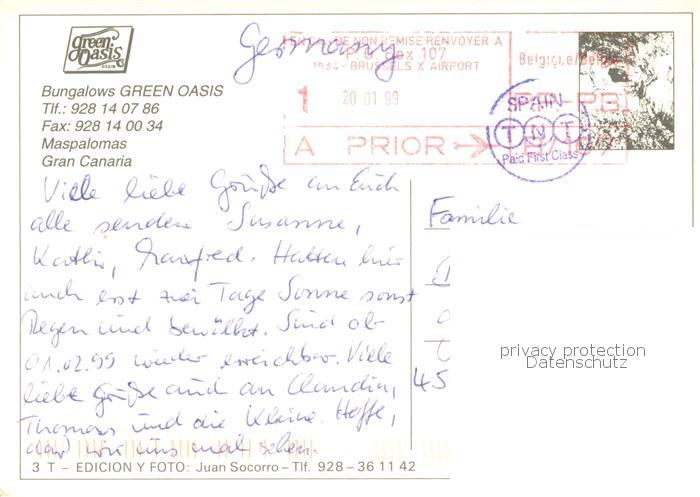 Green
Oasis
CLUB
Bungalows GREEN OASIS
Tlf.: 928 14 07 86
Fax: 928 14 00 34
Maspalomas
Gran Canaria
Germany
EN CAS DE NON REMISE RENVOYER A
P.O. Box 107
1934 - BRUSSELS X AIRPORT
Belgique/België
1
20 01 99
PP-PB
A PRIOR
SPAIN
TNT
Paid First Class
Viele liebe Grüße an Euch
alle senden Susanne,
Kathi, Manfred. Hatten hier
auch erst zwei Tage Sonne sonst
Regen und bewölkt. Sind ab
01.02.99 wieder erreichbar. Viele
liebe Grüße auch an Claudia,
Thomas und die Kleine. Hoffe,
daß wir uns mal sehen.
Familie
45
privacy protection
Datenschutz
3 T – EDICION Y FOTO: Juan Socorro – Tlf. 928 – 36 11 42